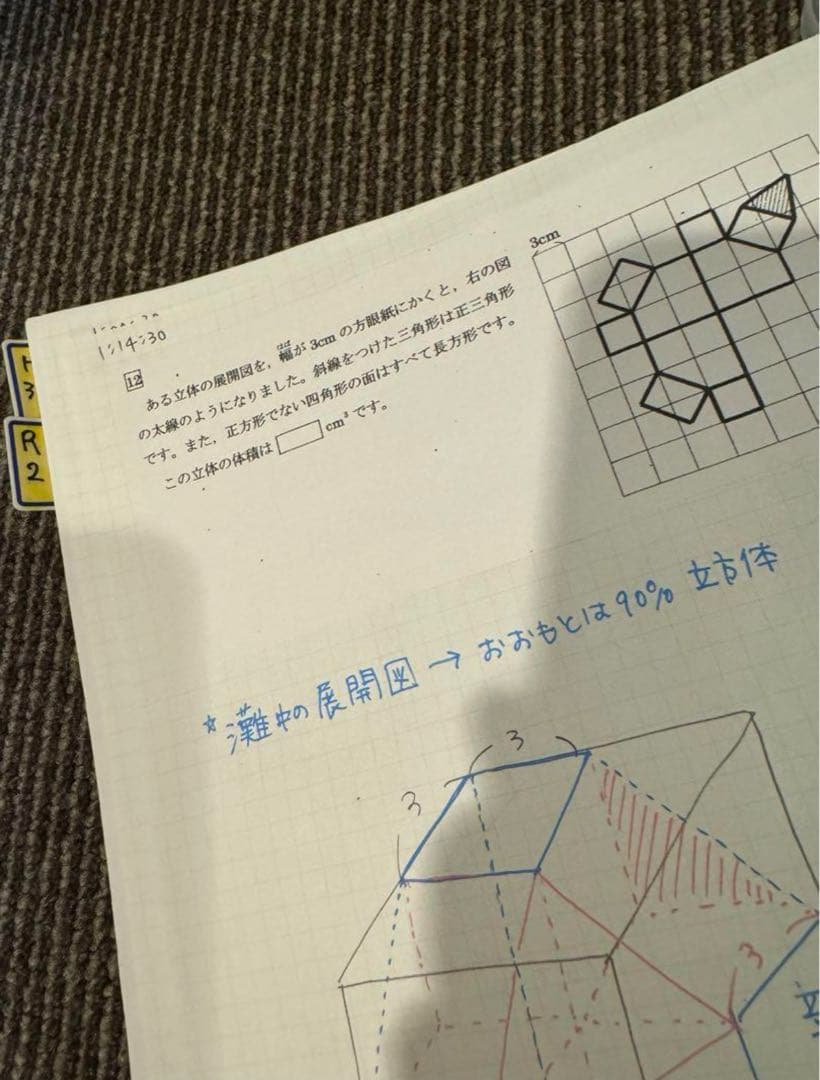 1:14:30
12
ある立体の展開図を，幅が 3cm の方眼紙にかくと，右の図
はば
の太線のようになりました。斜線をつけた三角形は正三角形
です。また，正方形でない四角形の面はすべて長方形です。
この立体の体積は cm³ です。
3cm
H
3
R
2
*灘中の展開図→おおもとは90% 立方体
3
3
3